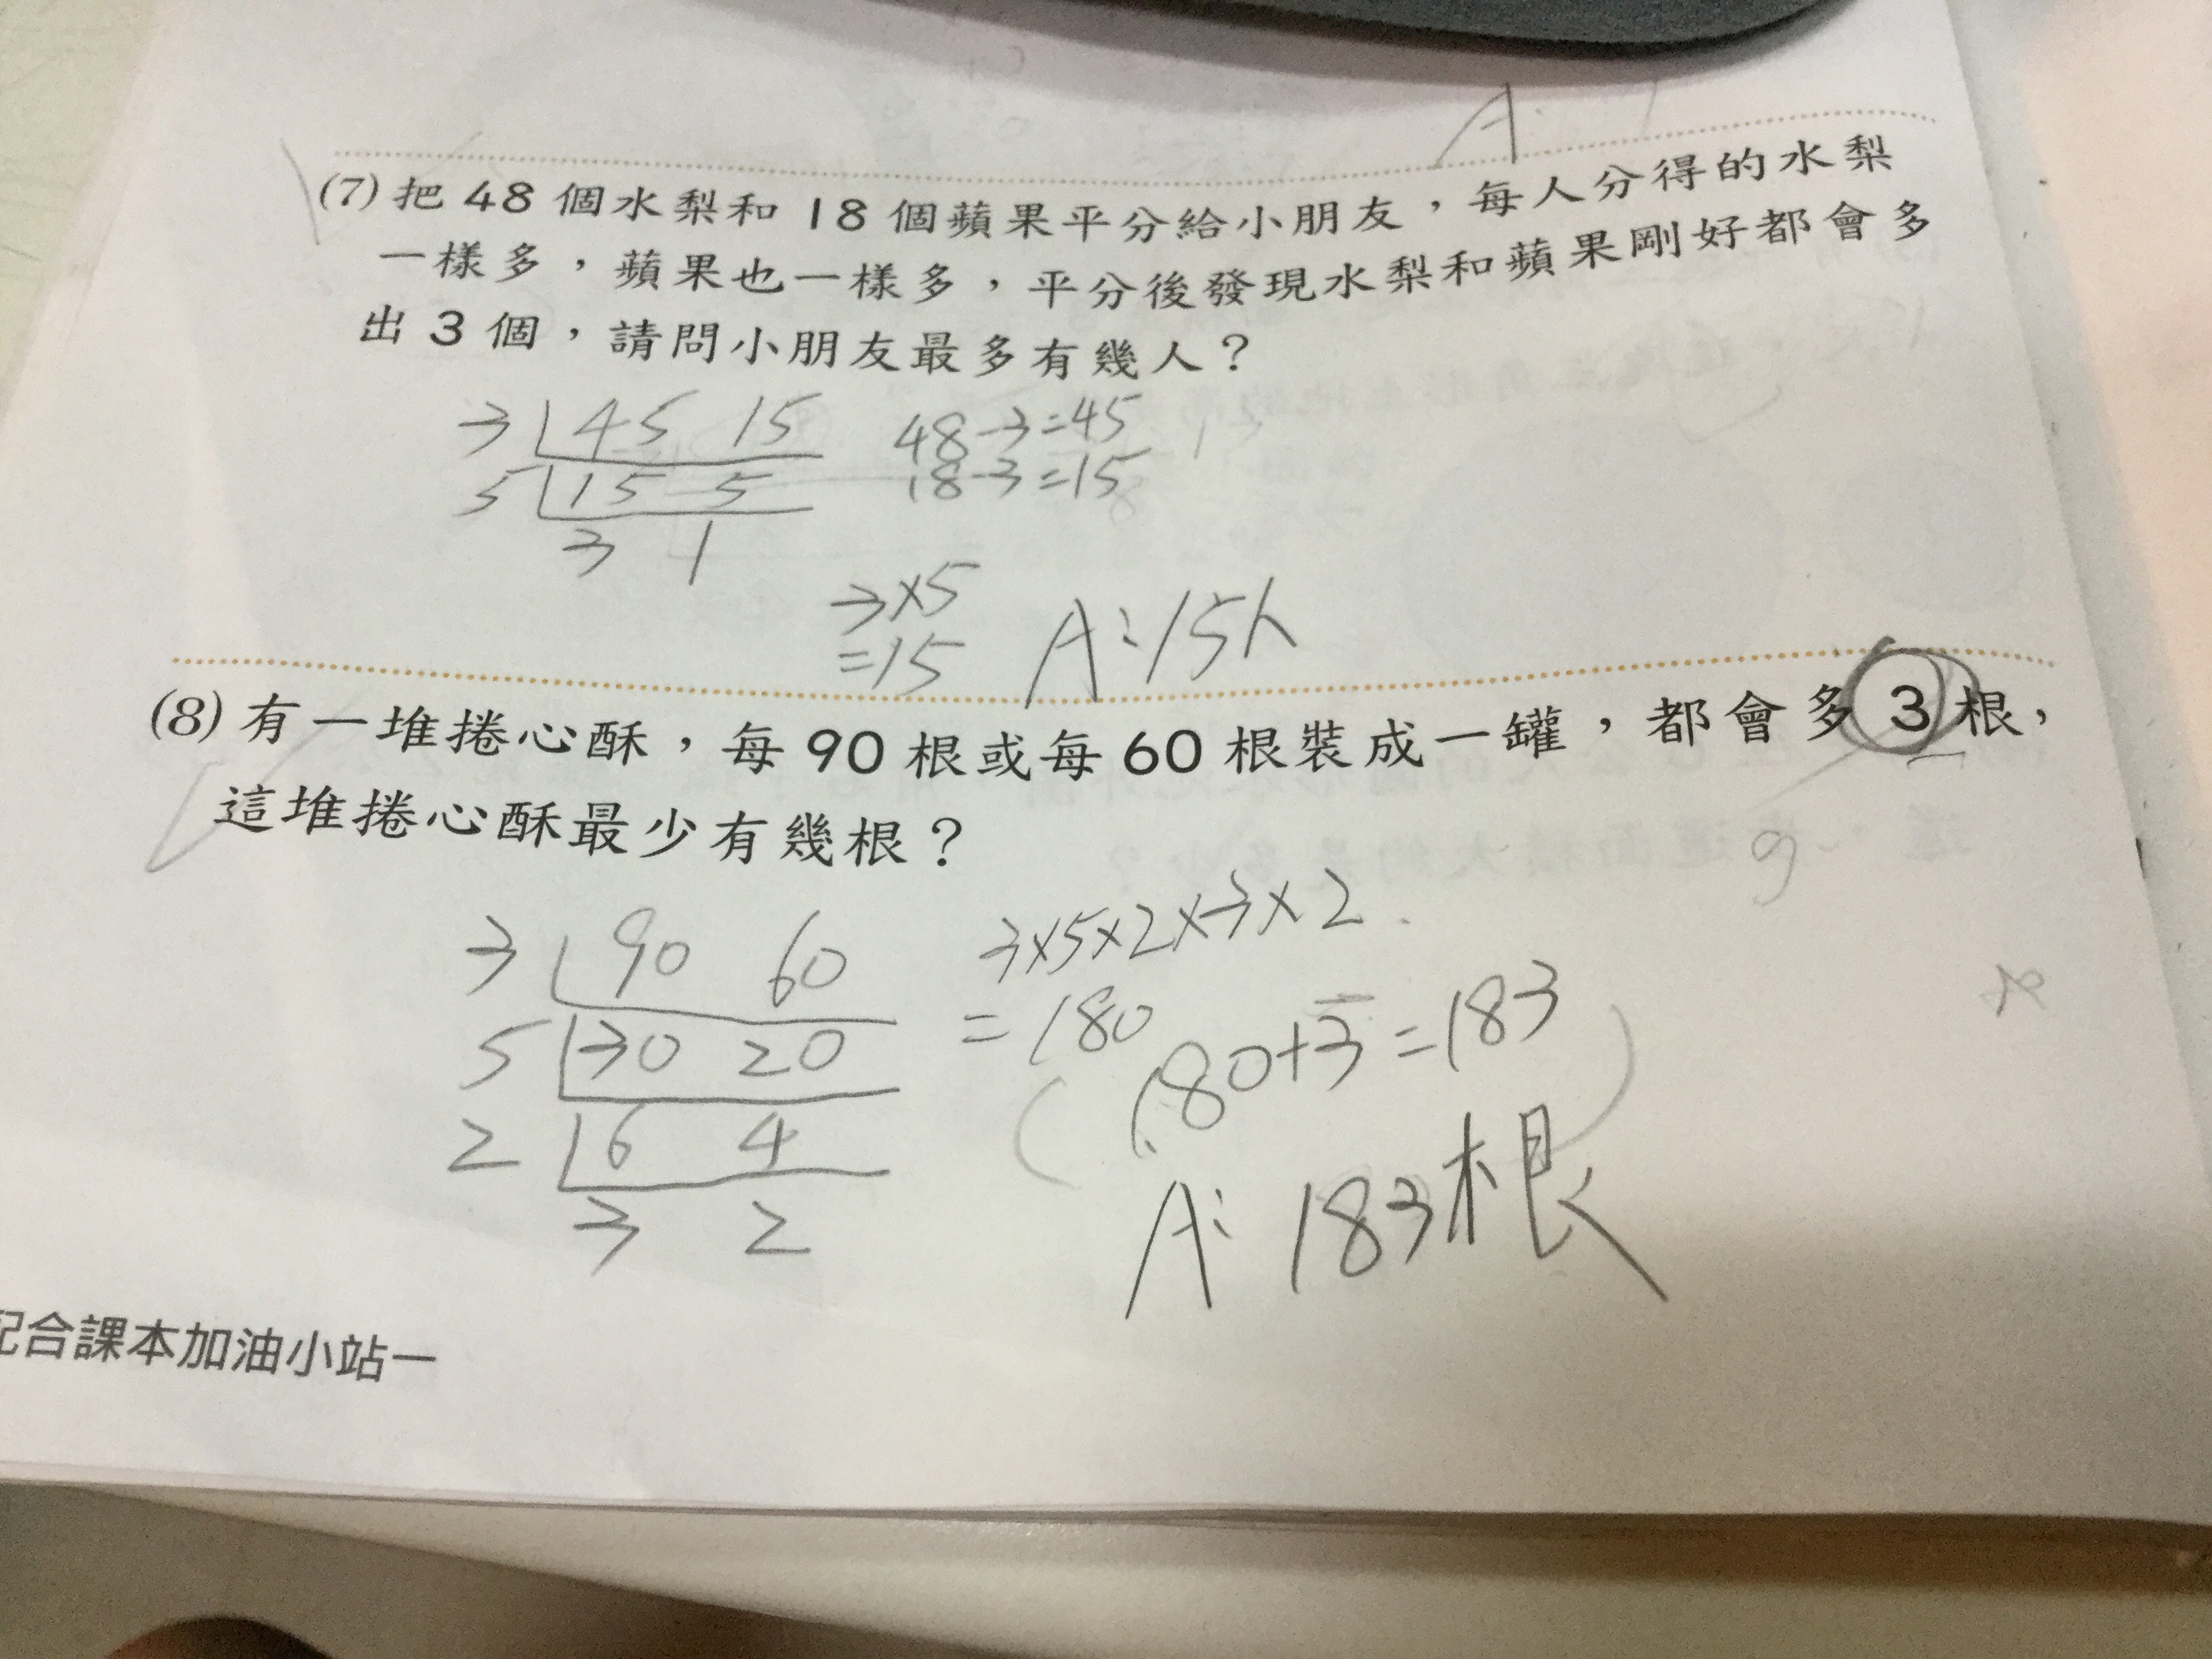 A:
(7) 把 48 個水梨和 18 個蘋果平分給小朋友，每人分得的水梨
一樣多，蘋果也一樣多，平分後發現水梨和蘋果剛好都會多
出 3 個，請問小朋友最多有幾人？
3 45 15 48-3=45
5 15 5 18-3=15
3 1
3×5
=15 A:15人
(8) 有一堆捲心酥，每 90 根或每 60 根裝成一罐，都會多 3 根，
這堆捲心酥最少有幾根？
3 90 60 3×5×2×3×2
5 30 20 =180
180+3=183
2 6 4
3 2
A: 183根
配合課本加油小站一